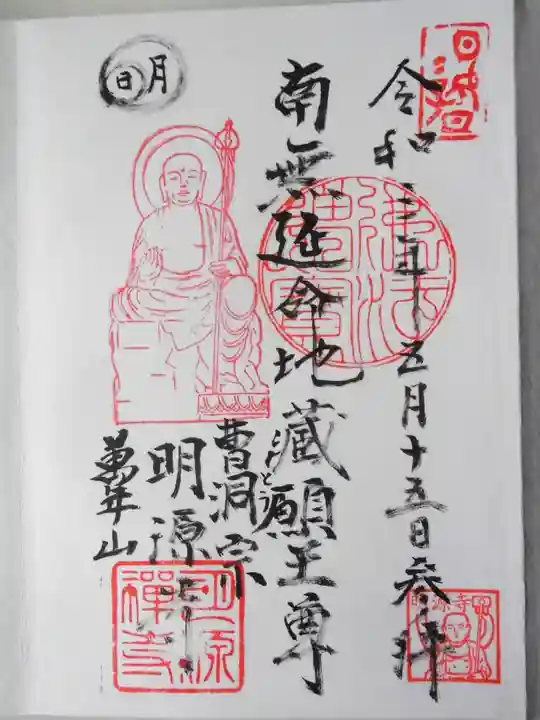 令和三年五月十五日参拝
南無延命地蔵願王尊
曹洞宗
明源寺
萬年山
月
日
佛法僧寶
明源禅寺